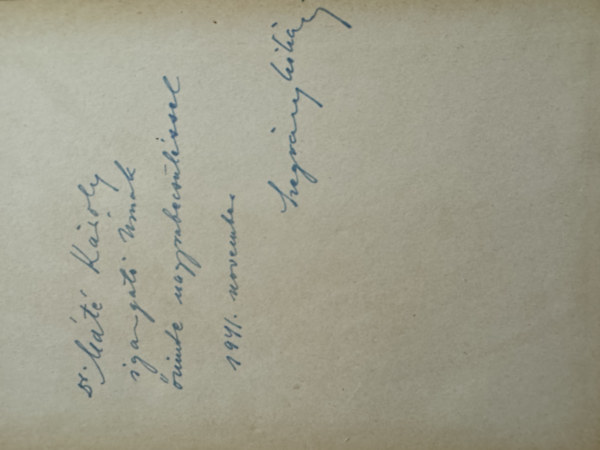 Dr. Máté Károly
igazgató Úrnak
őszinte nagyrabecsüléssel
1941. november
Szegváry Mihály